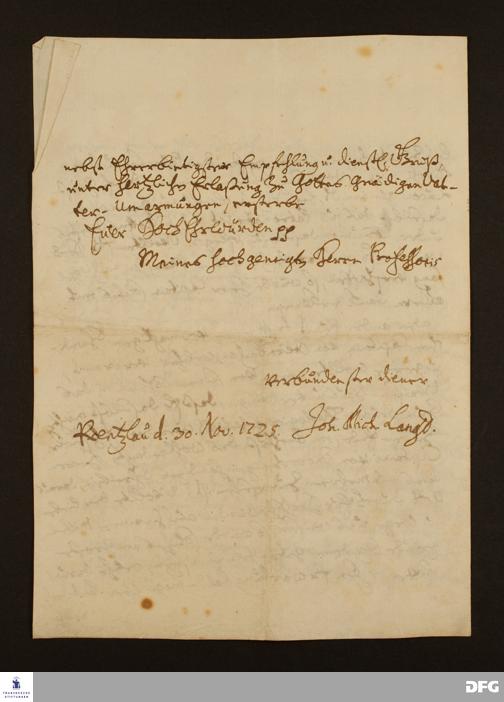 nebst Ehrerbietigster Empfehlung u. dienstl. Gruß,
unter hertzlicher Erlaßung zu Gottes gnädigen Vat-
ter-Umarmungen, ersterbe
Euer HochEhrwürden pp
Meines hochgeneigten Herrn Professoris
verbundenster diener
Prentzlau d. 30. Nov. 1725. Joh. Mich Langs D.
FRANCKESCHE
STIFTUNGEN
DFG